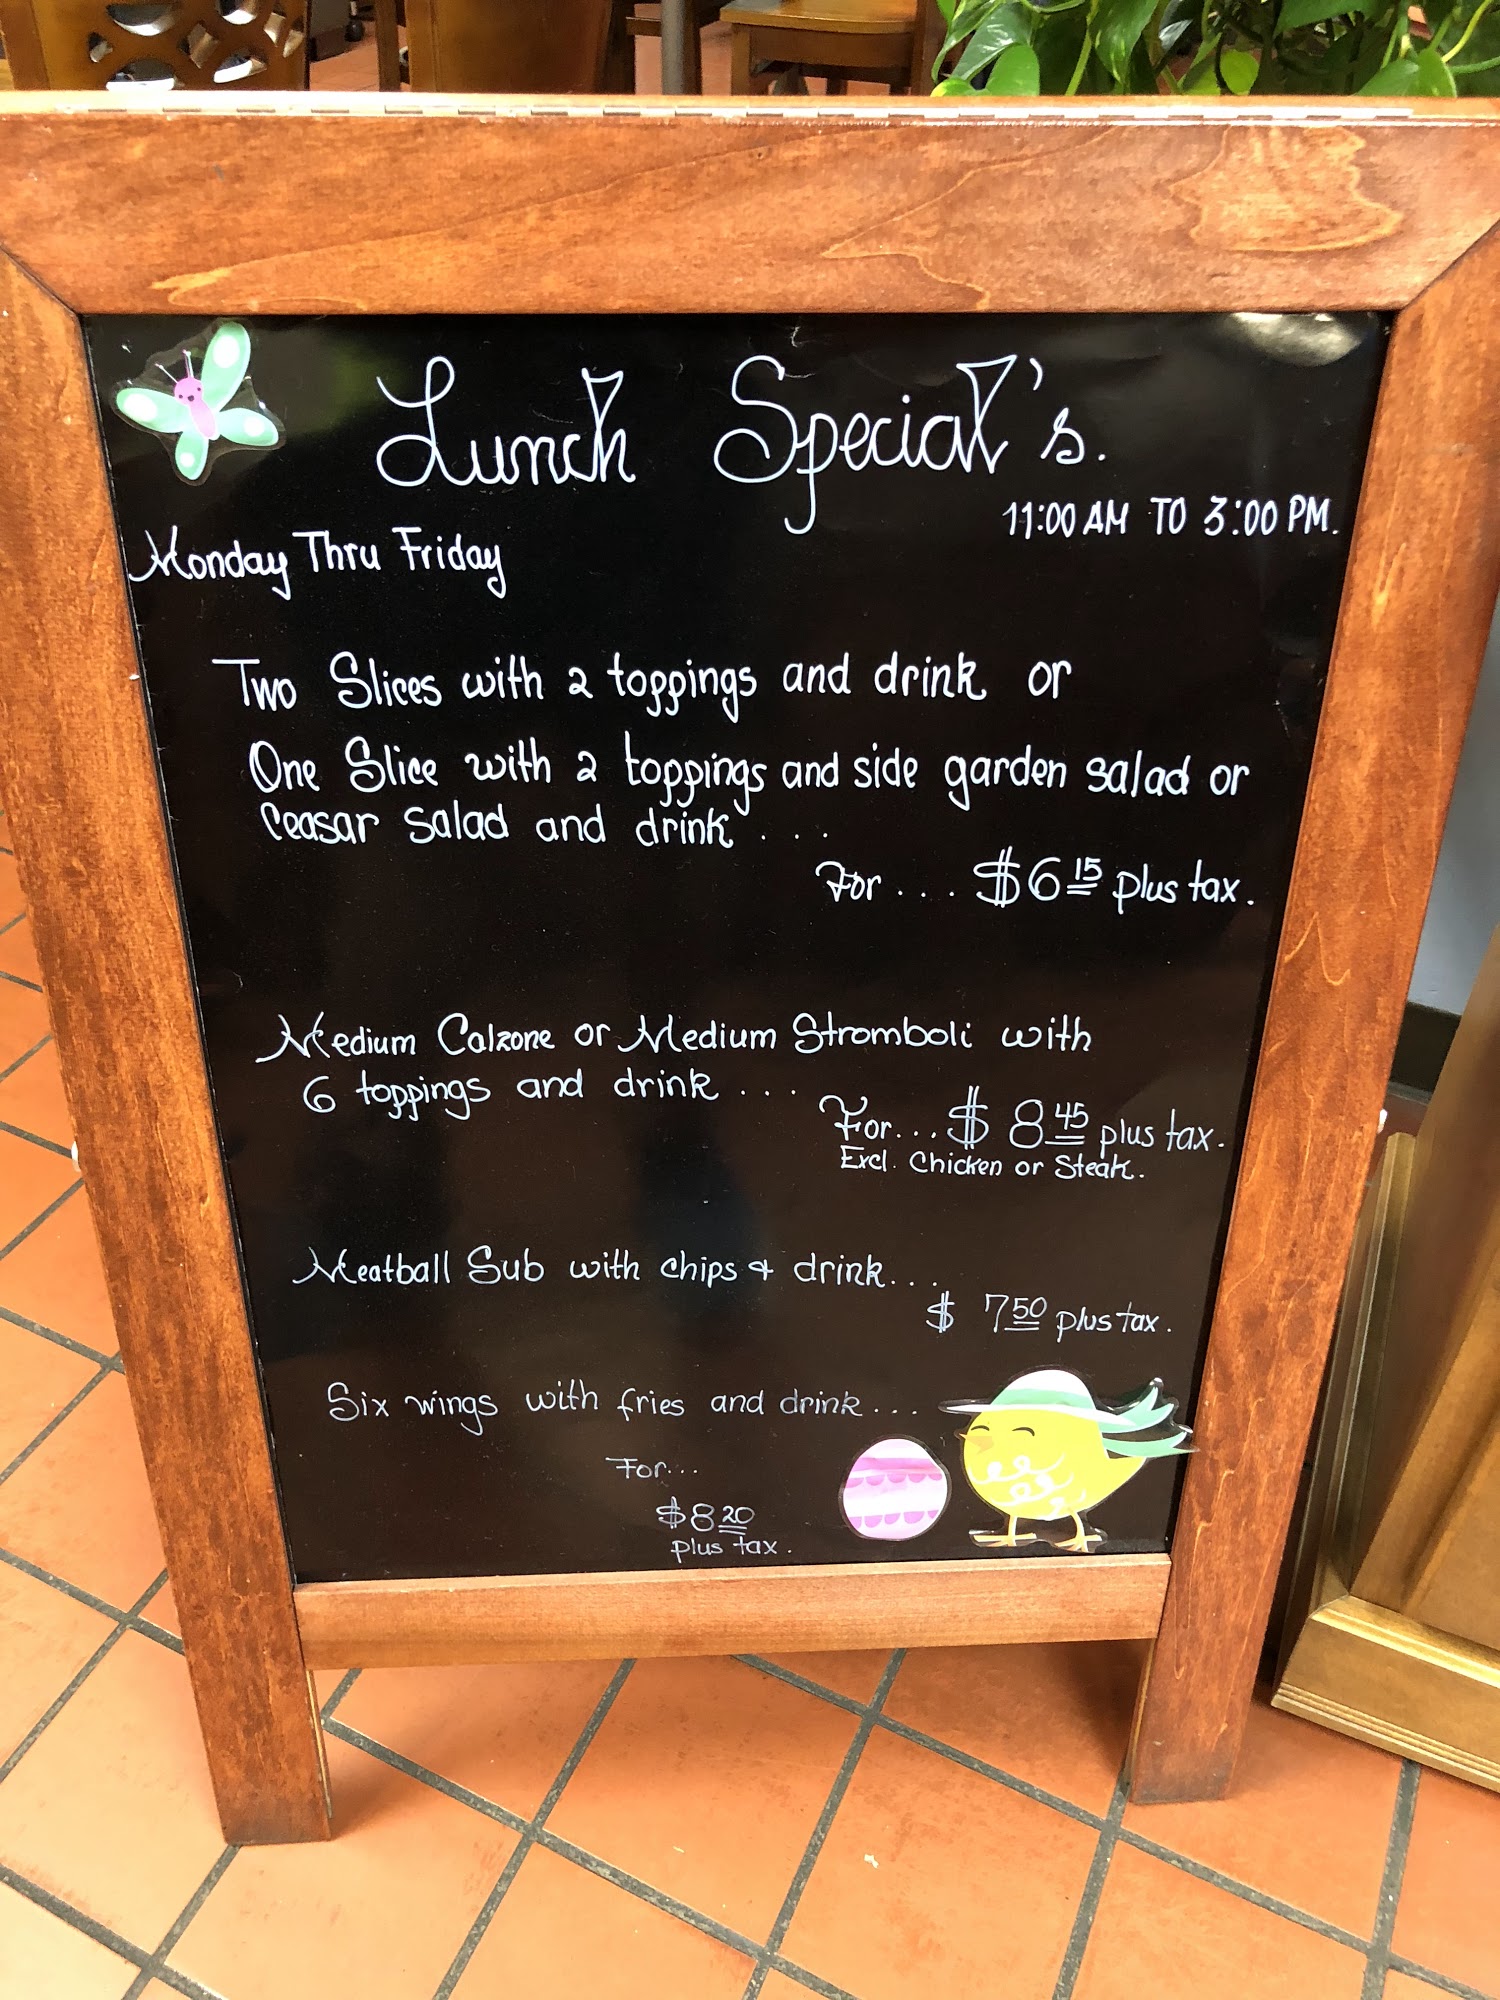 Lunch Special's.
11:00 AM TO 3:00 PM.
Monday Thru Friday
Two Slices with 2 toppings and drink or
One Slice with 2 toppings and side garden salad or
Ceasar salad and drink...
For.... $6 15 plus tax.
Medium Calzone or Medium Stromboli with
6 toppings and drink...
For... $ 8 45 plus tax.
Excl. Chicken or Steak.
Meatball Sub with chips & drink...
$ 7 50 plus tax.
Six wings with fries and drink...
For...
$8 20
plus tax.